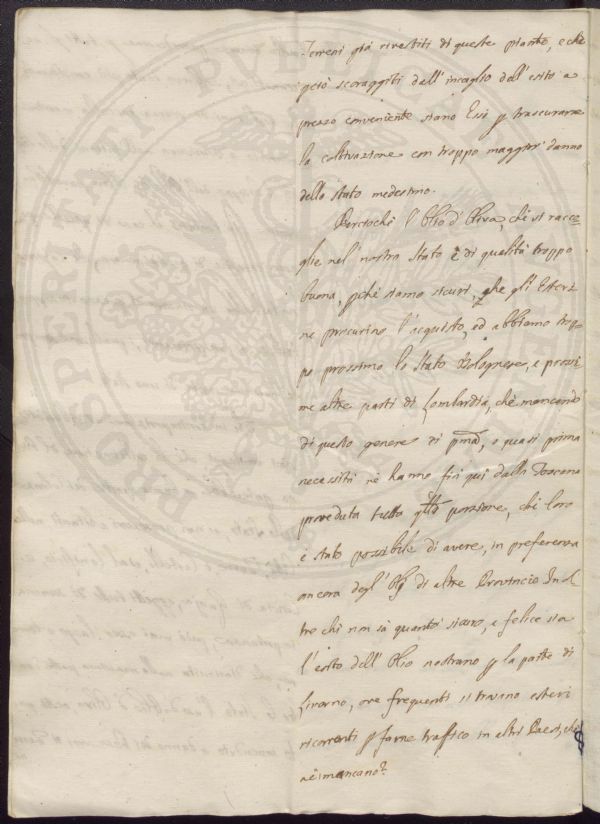 Terreni già rivestiti di queste piante, e che
però scoraggiti dall'incaglio dell'esito a
prezzo conveniente siano Essi p trascurarne
la coltivazione con troppo maggior danno
dello Stato medesimo.
Perciochè l'Olio d'Oliva, che si racco=
glie nel nostro Stato è di qualità troppo
buona, pchè siamo sicuri, che gli Esteri
ne procurino l'acquisto, ed abbiamo trop=
po prossimo lo Stato Bolognese, e prossi
me altre parti di Lombardia, che mancando
di questo genere di pma, o quasi prima
necessità nè hanno fin qui dalla Toscana
proveduta tutta qlla porzione, che loro
è stato possibile di avere, in preferenza
ancora degl'Olj di altre Provincie. Inol
tre chi non sà quanto sicuro, e felice sia
l'esito dell'Olio nostrano p la parte di
Livorno, ove frequenti si trovano esteri
ricorrenti p farne traffico in altri Paesi, che
nè mancano?
PROSPERITATI PUBLICAE